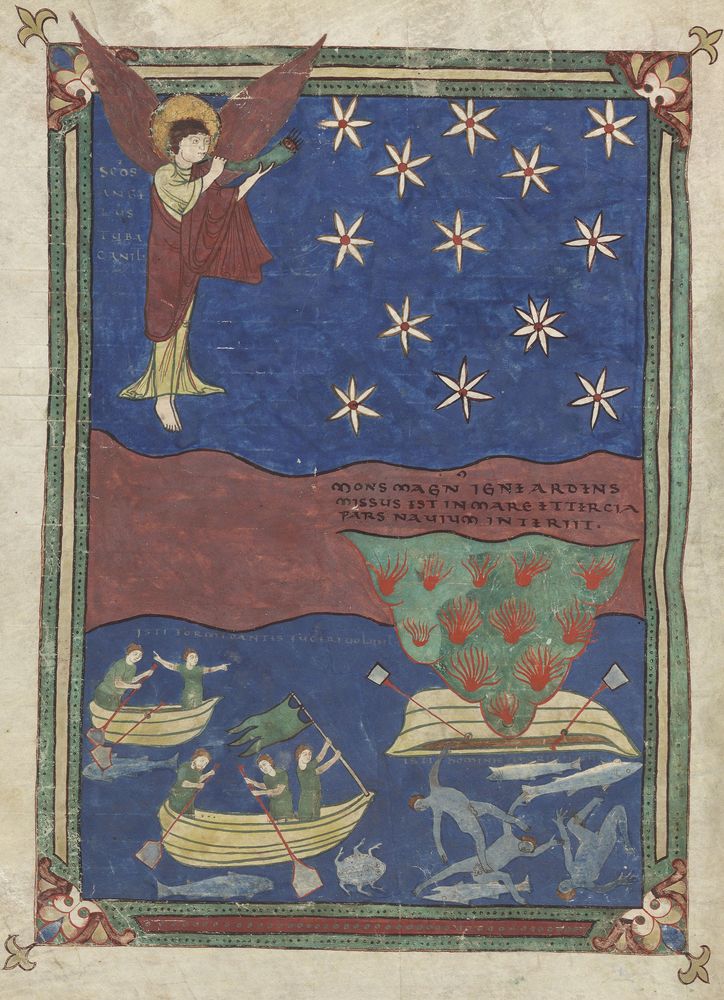 SC̅OS
ANGE
LUS
TUBA
CANIT
MONS MAGN̅ IGNE ARDENS
MISSUS EST IN MARE ET TERCIA
PARS NAVIUM INTERIIT.
ISTI FORMIDANTES FUGERE
ISTI HOMINES